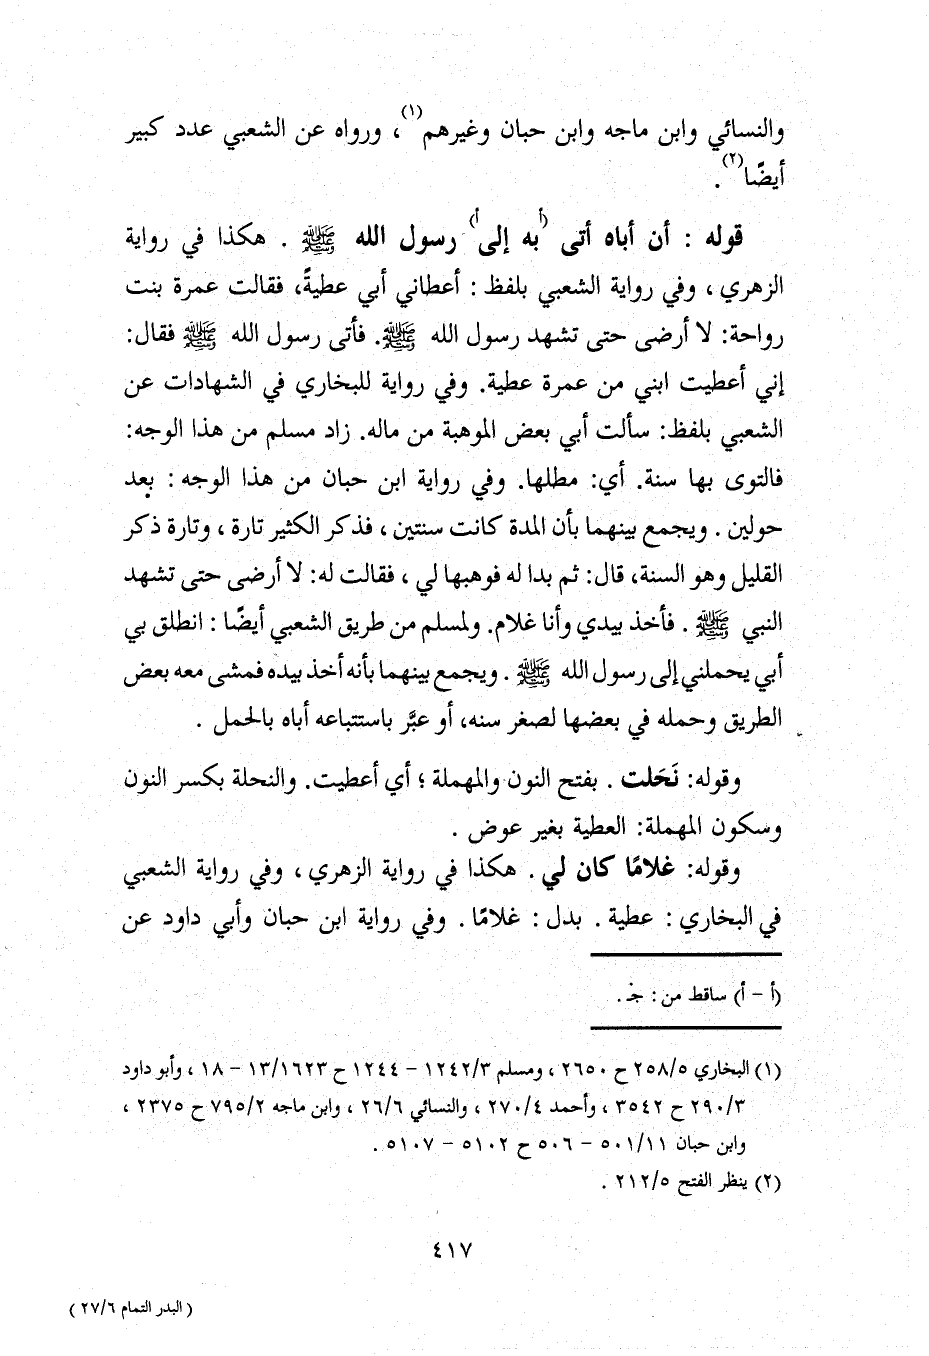 والنسائي وابن ماجه وابن حبان وغيرهم(١)، ورواه عن الشعبي عدد كبير
أيضًا(٢).
قوله : أن أباه أتى (أ به إلى أ) رسول الله ﷺ . هكذا في رواية
الزهري ، وفي رواية الشعبي بلفظ : أعطاني أبي عطيةً، فقالت عمرة بنت
رواحة: لا أرضى حتى تشهد رسول الله ﷺ. فأتى رسول الله ﷺ فقال:
إني أعطيت ابني من عمرة عطية. وفي رواية للبخاري في الشهادات عن
الشعبي بلفظ: سألت أبي بعض الموهبة من ماله. زاد مسلم من هذا الوجه:
فالتوى بها سنة. أي: مطلها. وفي رواية ابن حبان من هذا الوجه : بعد
حولين . ويجمع بينهما بأن المدة كانت سنتين ، فذكر الكثير تارة ، وتارة ذكر
القليل وهو السنة، قال: ثم بدا له فوهبها لي ، فقالت له: لا أرضى حتى تشهد
النبي ﷺ . فأخذ بيدي وأنا غلام. ولمسلم من طريق الشعبي أيضًا : انطلق بي
أبي يحملني إلى رسول الله ﷺ . ويجمع بينهما بأنه أخذ بيده فمشى معه بعض
الطريق وحمله في بعضها لصغر سنه، أو عبَّر باستتباعه أباه بالحمل .
وقوله: نَحَلت . بفتح النون والمهملة ؛ أي أعطيت. والنحلة بكسر النون
وسكون المهملة: العطية بغير عوض .
وقوله: غلامًا كان لي . هكذا في رواية الزهري ، وفي رواية الشعبي
في البخاري : عطية . بدل : غلامًا . وفي رواية ابن حبان وأبي داود عن
(أ - أ) ساقط من : جـ .
(١) البخاري ٢٥٨/٥ ح ٢٦٥٠ ، ومسلم ١٢٤٢/٣ - ١٢٤٤ ح ١٣/١٦٢٣ - ١٨ ، وأبو داود
٢٩٠/٣ ح ٣٥٤٢ ، وأحمد ٢٧٠/٤ ، والنسائي ٢٦/٦ ، وابن ماجه ٧٩٥/٢ ح ٢٣٧٥ ،
وابن حبان ٥٠١/١١ - ٥٠٦ ح ٥١٠٢ - ٥١٠٧ .
(٢) ينظر الفتح ٢١٢/٥ .
٤١٧
( البدر التمام ٢٧/٦ )